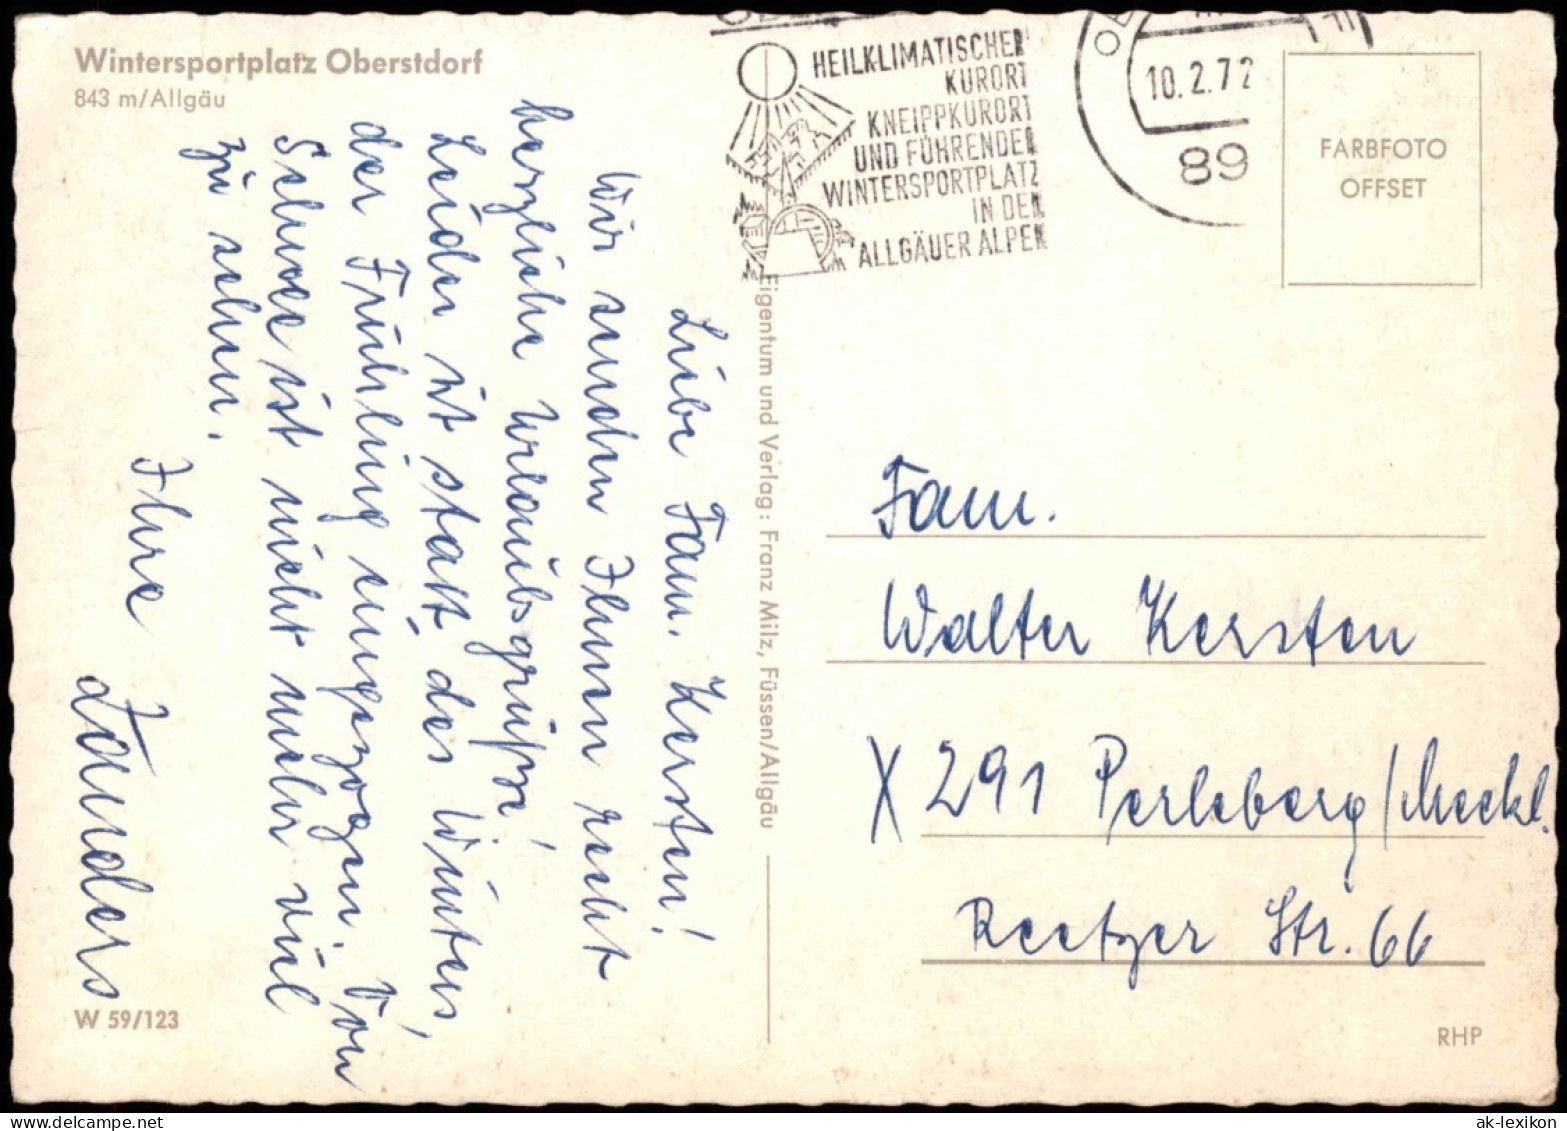 Wintersportplatz Oberstdorf
843 m/Allgäu
HEILKLIMATISCHER
KURORT
KNEIPPKURORT
UND FÜHRENDER
WINTERSPORTPLATZ
IN DEN
ALLGÄUER ALPEN
10.2.72
89
FARBFOTO
OFFSET
Liebe Fam. Kersten!
Wir senden Ihnen recht
herzliche Urlaubsgrüße!
Leider ist statt des Winters,
der Frühling eingezogen. Von
Schnee ist nicht mehr viel
zu sehen.
Ihre
Zanders
Eigentum und Verlag: Franz Milz, Füssen/Allgäu
Fam.
Walter Kersten
X 291 Perleberg/Meckl.
Reetzer Str. 66
W 59/123
RHP
ak-lexikon